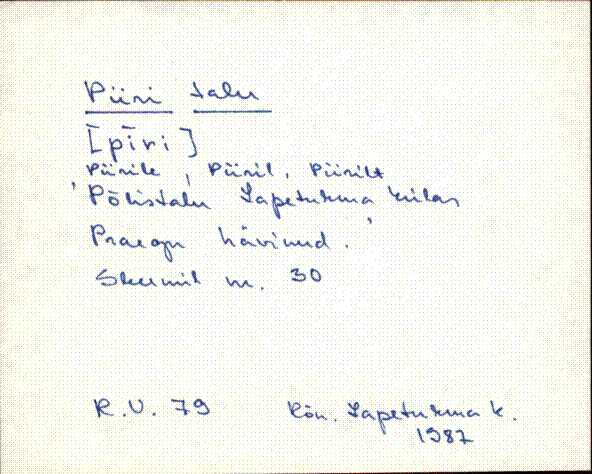 Piiri talu
[pīri]
Piirile, Piiril, Piirilt
'Põlistalu Lapetukma külas
Praegu hävinud.'
Skeemil nr. 30
R.V. 79 Rõn. Lapetukma k.
1987